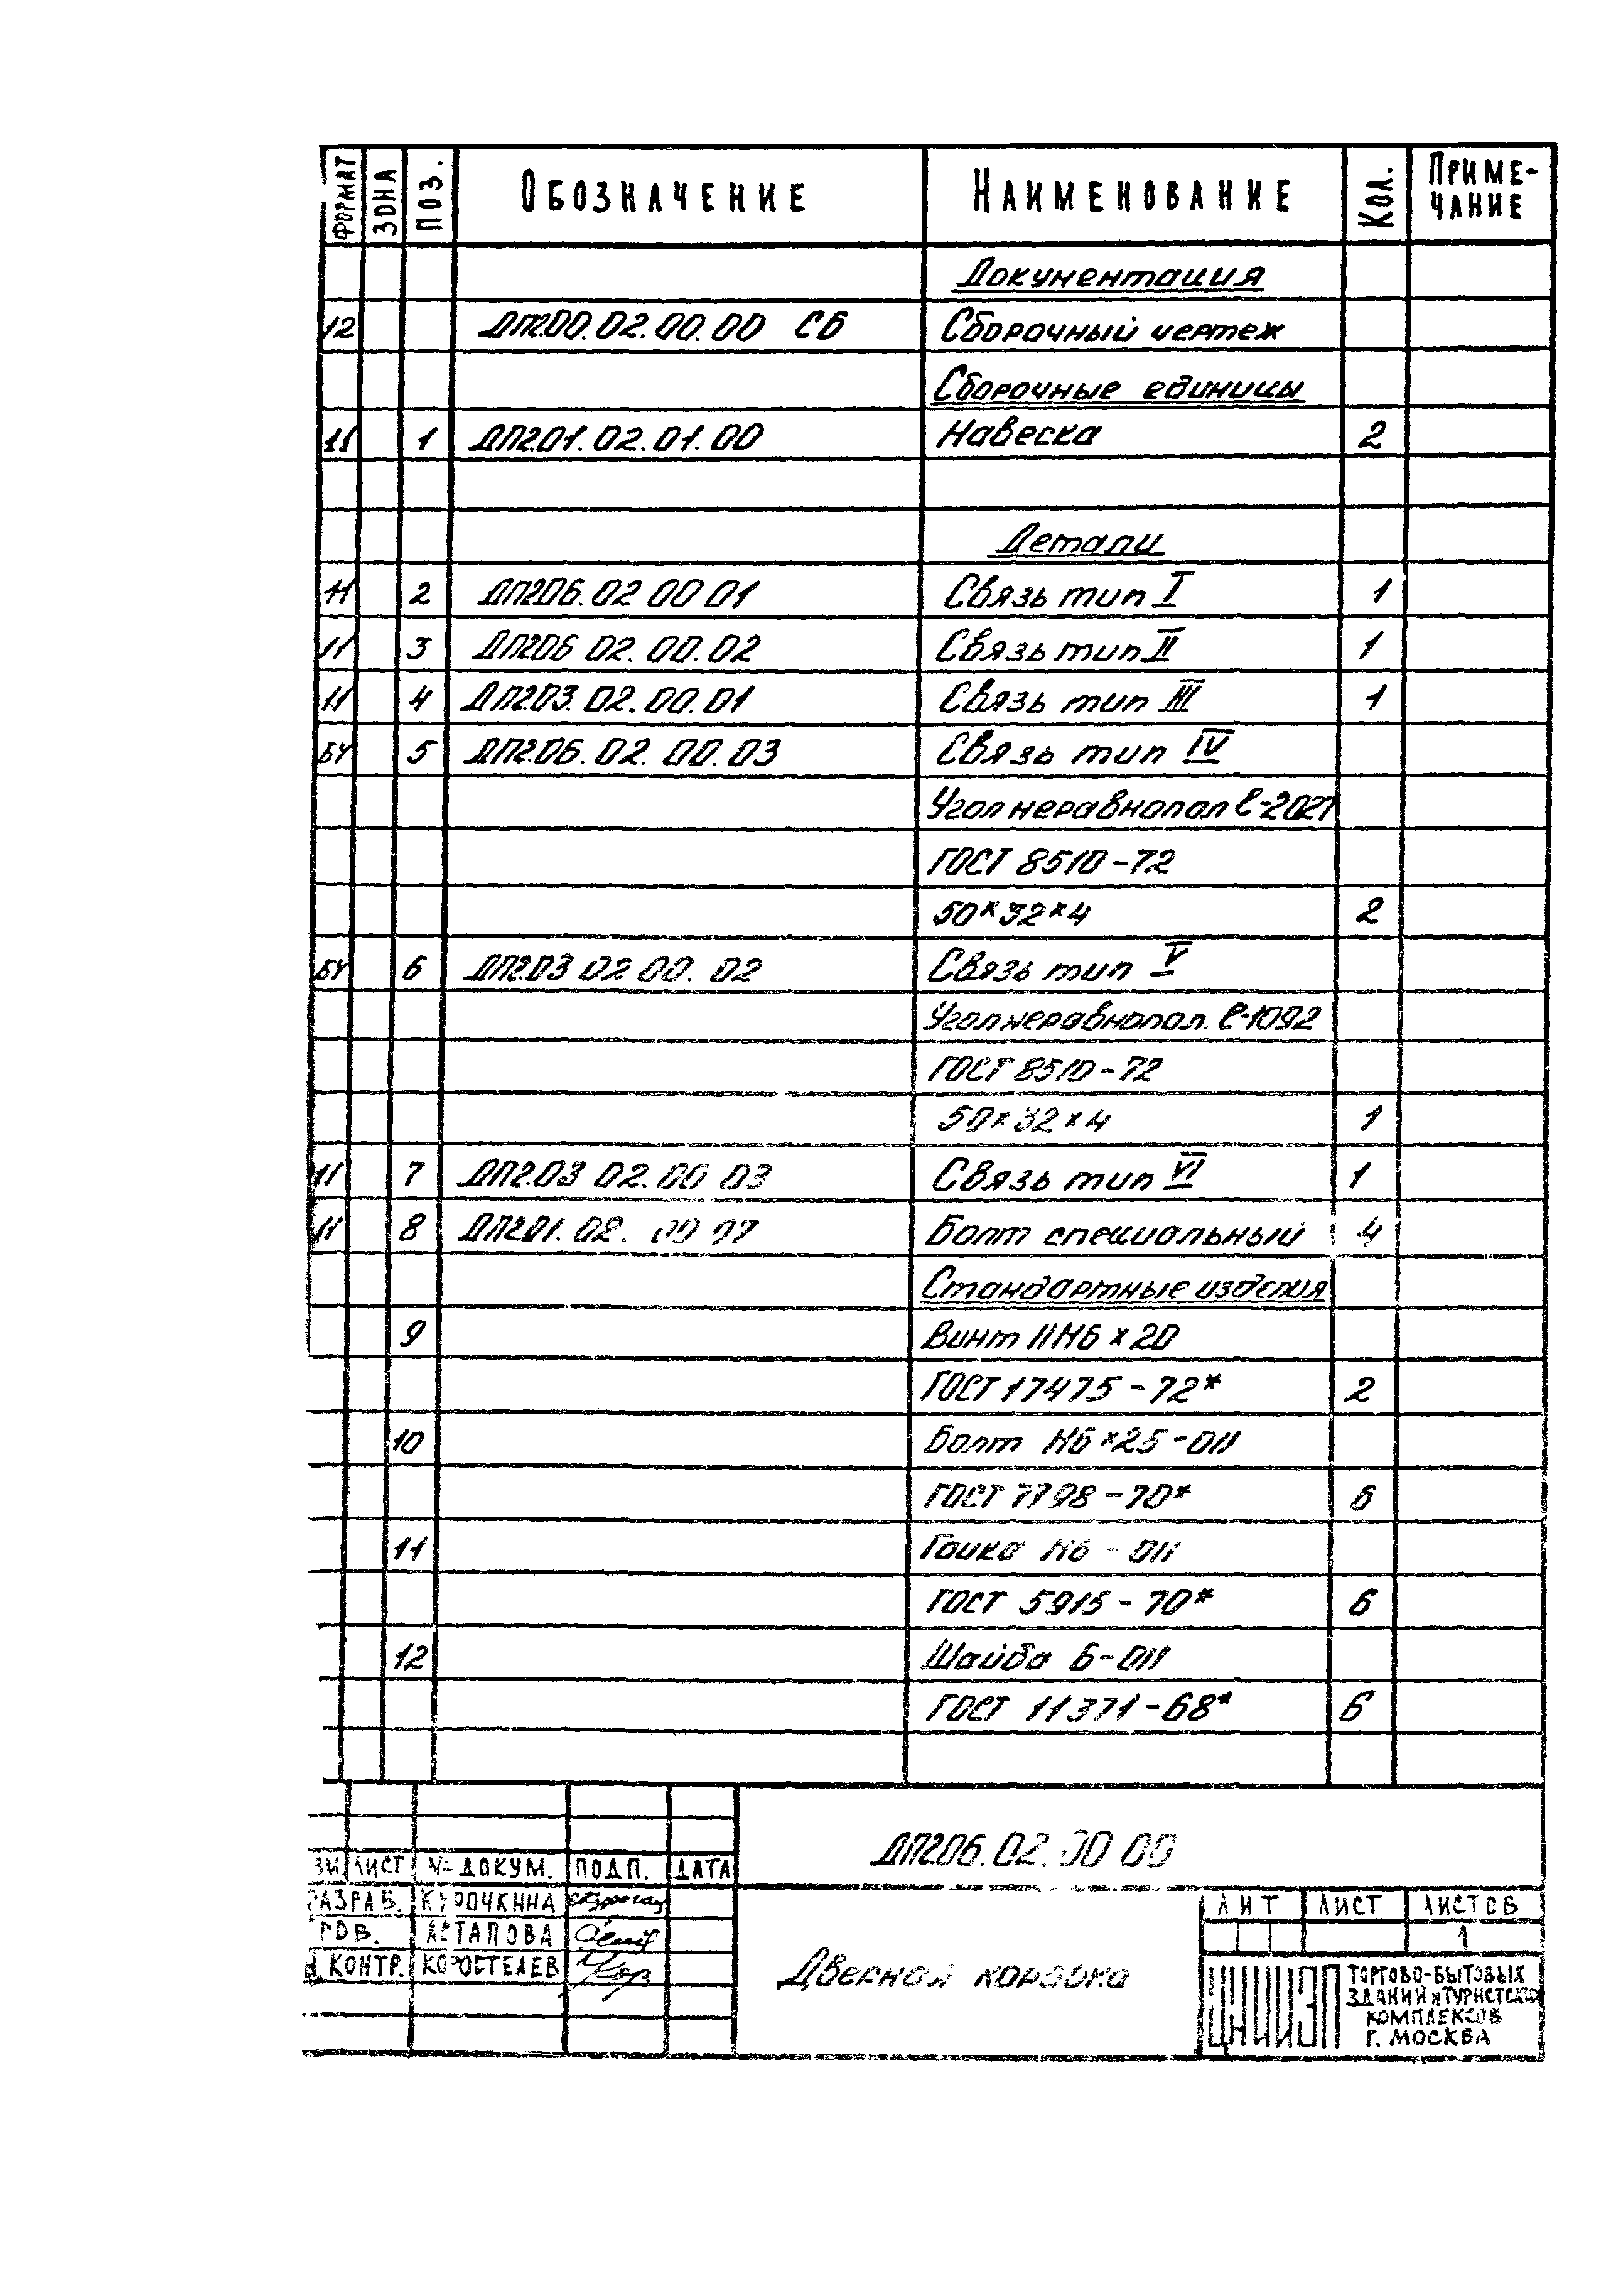 ФОРМАТ ЗОНА ПОЗ. ОБОЗНАЧЕНИЕ НАИМЕНОВАНИЕ КОЛ. ПРИМЕ-
ЧАНИЕ
Документация
12 ДП2.00.02.00.00 СБ Сборочный чертеж
Сборочные единицы
11 1 ДП2.01.02.01.00 Навеска 2
Детали
11 2 ДП2.06.02 00 01 Связь тип I 1
11 3 ДП2.06 02.00.02 Связь тип II 1
11 4 ДП2.03.02.00.01 Связь тип III 1
БЧ 5 ДП2.06.02.00.03 Связь тип IV
Угол неравнопол ℓ-2021
ГОСТ 8510-72
50×32×4 2
БЧ 6 ДП2.03 02 00.02 Связь тип V
Угол неравнопол. ℓ-1092
ГОСТ 8510-72
50×32×4 1
11 7 ДП2.03 02.00 03 Связь тип VI 1
11 8 ДП2.01.02. 00 07 Болт специальный 4
Стандартные изделия
9 Винт IIМ6×20
ГОСТ 17475-72* 2
10 Болт М6×25-011
ГОСТ 7798-70* 6
11 Гайка М6-011
ГОСТ 5915-70* 6
12 Шайба 6-011
ГОСТ 11371-68* 6
ДП2.06.02.00 00
ЛИСТ № ДОКУМ. ПОДП. ДАТА
РАЗРАБ. КУРОЧКИНА
ПРОВ. АСТАПОВА
Н. КОНТР. КОРОСТЕЛЕВ
Дверная коробка
ЛИТ ЛИСТ ЛИСТОВ
1
ЦНИИЭП
ТОРГОВО-БЫТОВЫХ
ЗДАНИЙ И ТУРИСТСКИХ
КОМПЛЕКСОВ
Г. МОСКВА